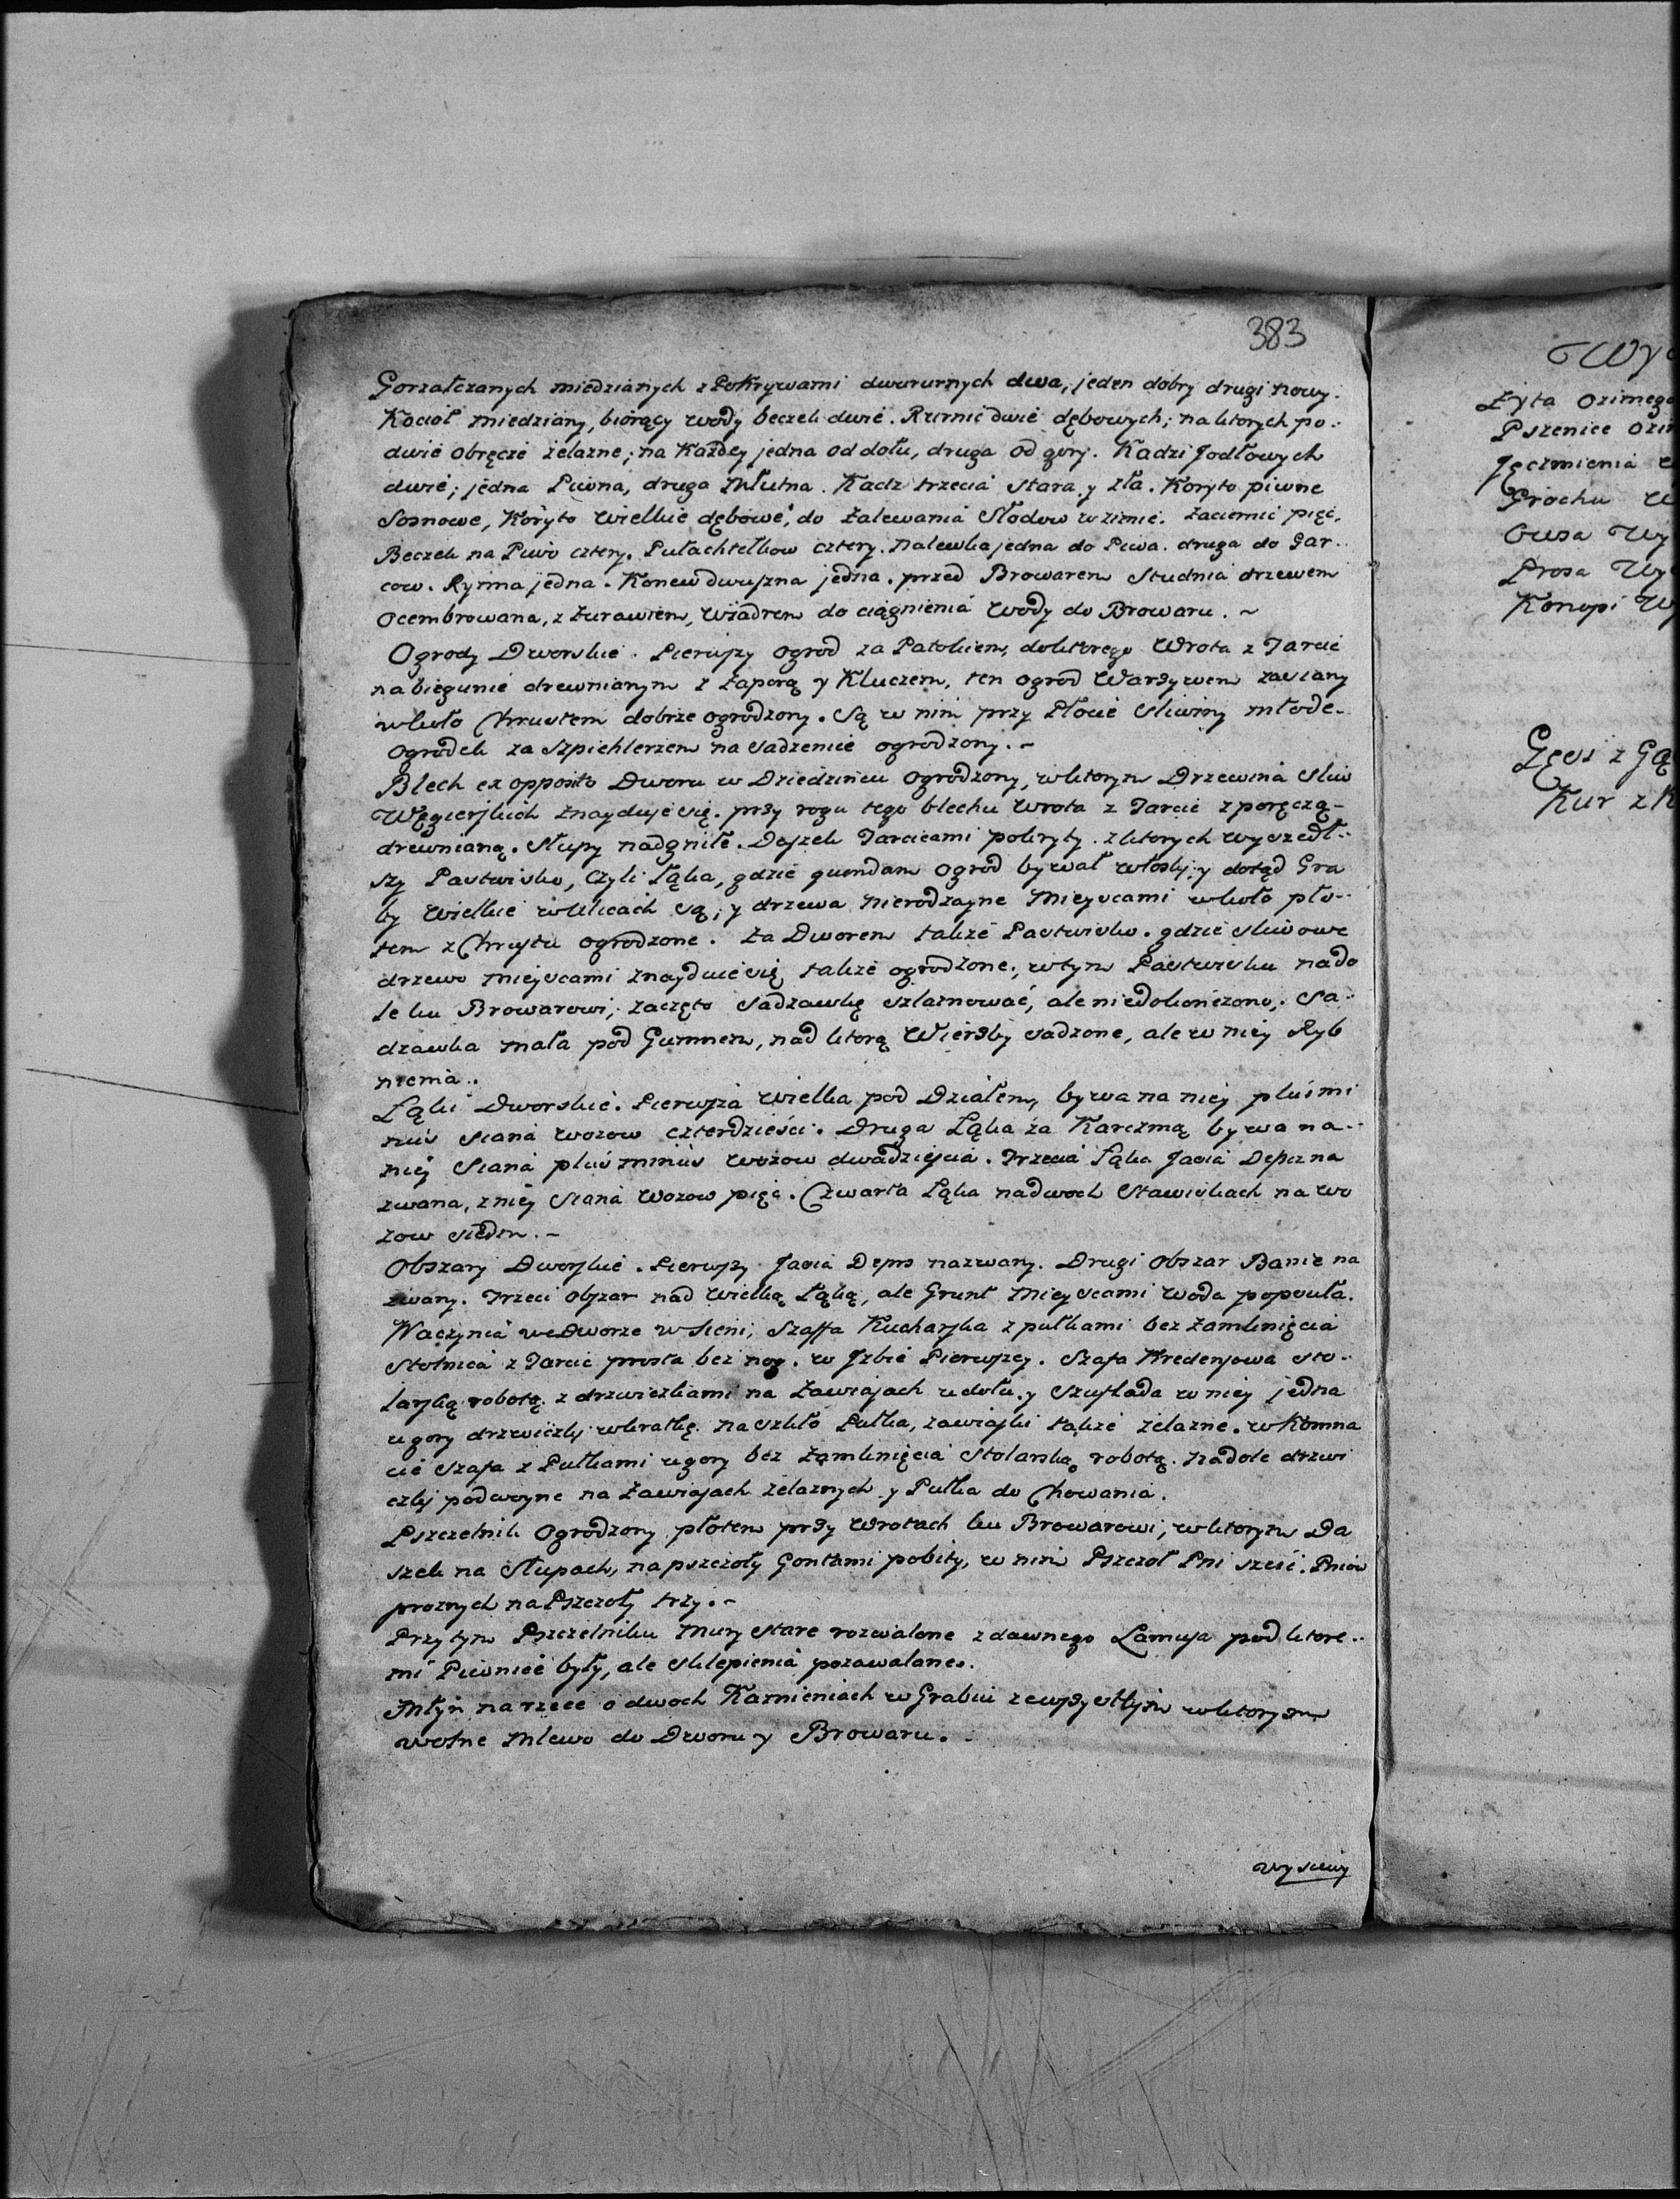 383
Gorzałczanych miedzianych z Pokrywami dwururnych dwa, jeden dobry drugi nowy.
Kocioł miedziany, biorący wody beczek dwie. Rurnic dwie dębowych; na ktorych po..
dwie obręcze żelazne; na Każdey jedna od dołu, druga od gory. Kadzi Jodłowych
dwie; jedna Piwna, druga Młutna. Kadz trzecia stara y zła. Koryto piwne
Sosnowe, Koryto wielkie dębowe, do zalewania Słodow w zimie. Zaciernic pięć.
Beczek na Piwo cztery. Pułachtelkow cztery. Nalewka jedna do Piwa. druga do Gar..
cow. Rynna jedna. Konew dwuszna jedna. przed Browarem Studnia drzewem
ocembrowana, z żurawiem, wiadrem do ciągnienia wody do Browaru. ~
Ogrody Dworskie. Pierwszy ogrod za Patokiem, do ktorego Wrota z Tarcic
na biegunie drewnianym z zaporą y Kluczem, ten ogrod Warzywem zasiany
wkoło Chrustem dobrze ogrodzony. Są w nim przy Płocie sliwiny młode.
Ogrodek za Szpichlerzem na sadzenie ogrodzony. ~
Blech ex opposito Dworu w Dziedzińcu ogrodzony, w ktorym Drzewina sliw
Węgierskich znayduje się. przy rogu tego blechu wrota z Tarcic z poręczą-
drewnianą. Słupy nadgniłe. Daszek Tarcicami pokryty. z ktorych wyszedł..
szy Pastwisko, czyli Łąka, gdzie quondam ogrod bywał włoski; y dotąd Gra
by wielkie w ulicach są, y drzewa nierodzayne mieyscami wkoło pło..
tem z Chrustu ogrodzone. Za Dworem także Pastwisko. gdzie sliwowe
drzewo mieyscami znayduie się także ogrodzone; w tym Pastwisku na do
le ku Browarowi; zaczęto Sadzawkę szlamować, ale niedokończono; Sa..
dzawka mała pod Gumnem, nad ktorą Wierzby sadzone, ale w niey Ryb
niema..
Łąki Dworskie. Pierwsza wielka pod Działem, bywa na niey plus mi
nus siana wozow czterdzieści. Druga Łąka za Karczmą bywa na..
niey Siana plus minus wozow dwadziescia. Trzecia Łąka Jasia na
zwana, z niey siana wozow pięć. Czwarta Łąka na dwoch Stawiskach na wo
zow siedm. ~
Obszary Dworskie. Pierwszy Jasia nazwany. Drugi obszar Banie na
zwany. Trzeci obszar nad wielką Łąką, ale Grunt mieyscami woda popsuła.
Naczynia we Dworze w sieni; Szaffa Kucharska z pułkami bez zamknięcia
Stolnica z Tarcic prosta bez nog. w Jzbie Pierwszey. Szafa Kredensowa sto..
larską robotą z drzwiczkami na zawiasach u dołu. y szuflada w niey jedna
u gory drzwiczki w kratkę. na szkło Pułka, zawiaski także żelazne. w Komna
cie szafa z Pułkami u gory bez zamknięcia Stolarską robotą. na dole drzwi
czki podwoyne na zawiasach żelaznych y Pułka do Chowania.
Pszczelnik ogrodzony płotem przy wrotach ku Browarowi, w ktorym Da
szek na Słupach, na pszczoły Gontami pobity, w nim Pszczoł Pni sześć. Pniow
proznych na Pszczoły trzy. ~
Przy tym Pszczelniku mury stare rozwalone z dawnego Lamusa pod ktore..
mi Piwnice były, ale sklepienia pozawalane.
Młyn na rzece o dwoch Kamieniach w Grabiu ze wszystkim w ktorym
wolne mlewo do Dworu y Browaru.
wysiewy
Wy
Żyta ozimego
Pszenice ozim
Jęczmienia
Grochu W
Owsa Wy
Prosa Wy
Konopi W
Gęsi z Gą
Kur z K